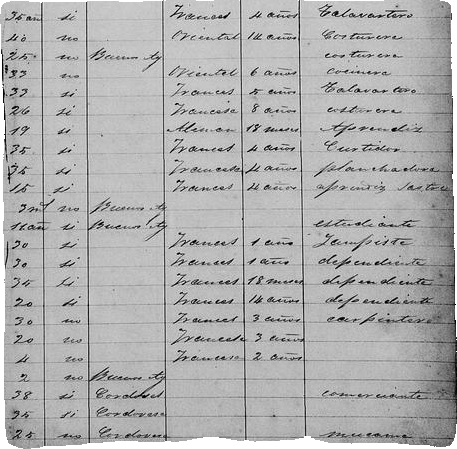 35 añ si Frances 4 años Talavartero
40 no Oriental 14 años Costurera
25 no Buenos Ay costurera
33 no Oriental 6 años cocinera
33 si Frances 5 años Talavartero
26 si Francesa 8 años costurera
19 si Aleman 18 meses Aprendiz
35 si Frances 4 años Curtidor
35 si Francesa 4 años planchadora
15 si Frances 4 años aprendiz Sastre
3 no Buenos Ay
16 añ si Buenos Ay estudiante
30 si Frances 1 año
30 si Frances 1 año dependiente
34 si Frances 18 meses dependiente
20 si Frances 14 años dependiente
30 no Frances 3 años carpintero
20 no Francesa 3 años
4 no Francesa 2 años
2 no Buenos Ay
38 si Cordobes comerciante
35 si Cordovesa
25 no Cordovesa mucama